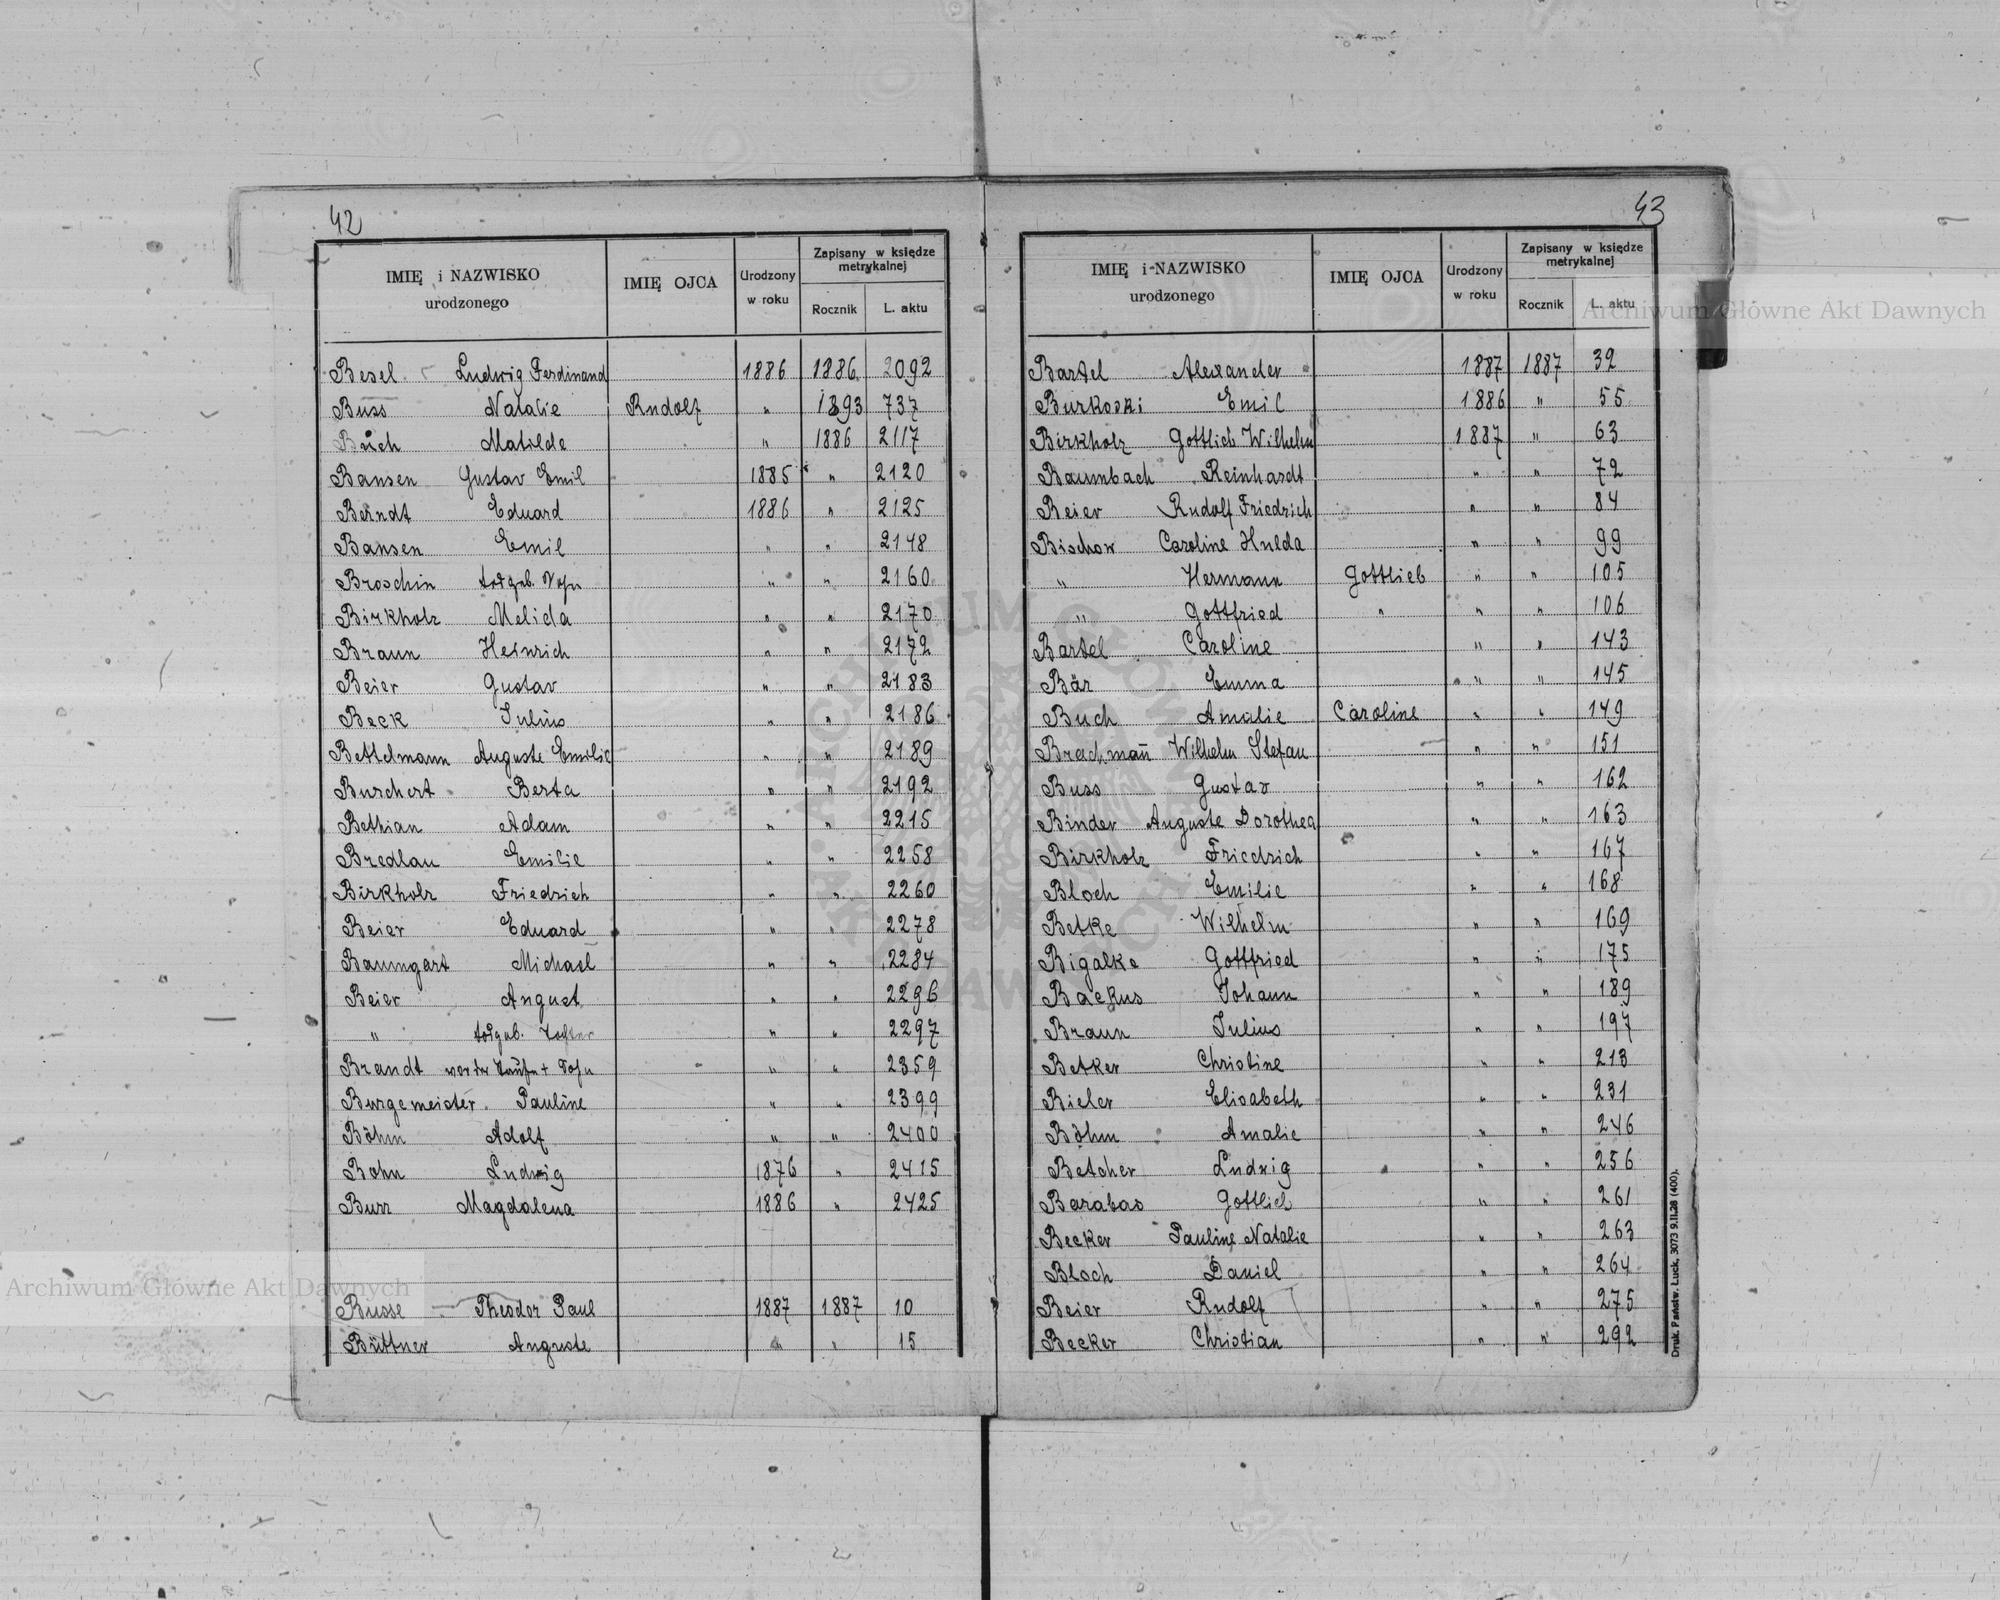 42
IMIĘ i NAZWISKO urodzonego IMIĘ OJCA Urodzony w roku Zapisany w księdze metrykalnej Rocznik L. aktu
Besel Ludwig Ferdinand 1886 1886 2092
Buss Natalie Rudolf " 1893 737
Buch Matilde " 1886 2117
Bansen Gustav Emil 1885 " 2120
Berndt Eduard 1886 " 2125
Bansen Emil " " 2148
Broschin todgeb. Sohn " " 2160
Birkholz Melida " " 2170
Braun Heinrich " " 2172
Beier Gustav " " 2183
Beck Julius " " 2186
Bettelmann Auguste Emilie " " 2189
Burchert Berta " " 2192
Bethian Adam " " 2215
Bredlau Emilie " " 2258
Birkholz Friedrich " " 2260
Beier Eduard " " 2278
Baumgart Michael " " 2284
Beier August " " 2296
" todgeb. Tochter " " 2297
Brandt vor der Taufe + Sohn " " 2359
Burgemeister Pauline " " 2399
Böhm Adolf " " 2400
Bohn Ludwig 1876 " 2415
Burr Magdalena 1886 " 2425
Busse Theodor Paul 1887 1887 10
Büttner Auguste " " 15
43
IMIĘ i NAZWISKO urodzonego IMIĘ OJCA Urodzony w roku Zapisany w księdze metrykalnej Rocznik L. aktu
Bartel Alexander 1887 1887 32
Burkoski Emil 1886 " 55
Birkholz Gottlieb Wilhelm 1887 " 63
Baumbach Reinhardt " " 72
Beier Rudolf Friedrich " " 84
Bischow Caroline Hulda " " 99
" Hermann Gottlieb " " 105
" Gottfried " " " 106
Bartel Caroline " " 143
Bär Emma " " 145
Buch Amalie Caroline " " 149
Brachman̄ Wilhelm Stefan " " 151
Buss Gustav " " 162
Binder Auguste Dorothea " " 163
Birkholz Friedrich " " 167
Bloch Emilie " " 168
Betke Wilhelm " " 169
Bigalke Gottfried " " 175
Backus Johann " " 189
Braun Julius " " 197
Betker Christine " " 213
Bieler Elisabeth " " 231
Böhm Amalie " " 246
Betcher Ludwig " " 256
Barabas Gottlieb " " 261
Becker Pauline Natalie " " 263
Bloch Daniel " " 264
Beier Rudolf " " 275
Becker Christian " " 292
Druk. Państw. Łuck, 3073 9.II.28 (400).
Archiwum Główne Akt Dawnych
Archiwum Główne Akt Dawnych
ARCHIWUM GŁÓWNE AKT DAWNYCH